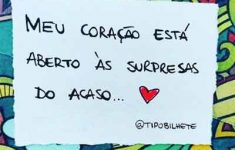 MEU CORAÇÃO ESTÁ
ABERTO ÀS SURPRESAS
DO ACASO...
@TIPOBILHETE